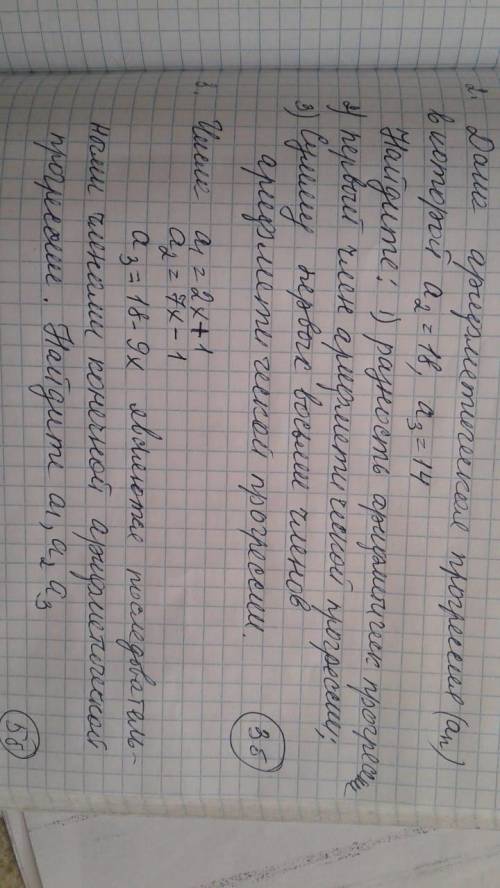 2. Дана арифметическая прогрессия (an)
в которой a2 = 18, a3 = 14
Найдите: 1) разность арифметическ прогрессии
2) первый член арифметической прогрессии;
3) Сумму первых восьми членов
арифметической прогрессии.
3б
3. Числа a1 = 2x+1
a2 = 7x-1
a3 = 18-9x являются последователь-
ными членами конечной арифметической
прогрессии. Найдите a1, a2 a3
5б